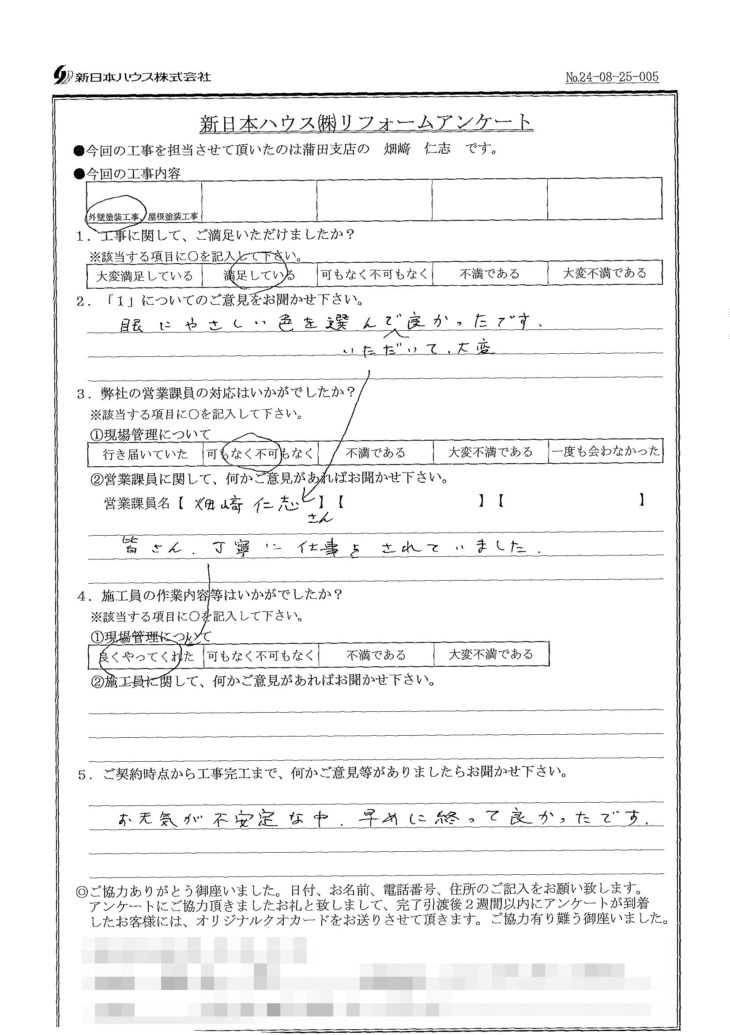 新日本ハウス株式会社
№24-08-25-005
新日本ハウス㈱リフォームアンケート
●今回の工事を担当させて頂いたのは蒲田支店の 畑﨑 仁志 です。
●今回の工事内容
外壁塗装工事、屋根塗装工事
1．工事に関して、ご満足いただけましたか？
※該当する項目に○を記入して下さい。
大変満足している 満足している 可もなく不可もなく 不満である 大変不満である
2．「1」についてのご意見をお聞かせ下さい。
眼にやさしい色を選んで良かったです.
いただいて、大変
3．弊社の営業課員の対応はいかがでしたか？
※該当する項目に○を記入して下さい。
①現場管理について
行き届いていた 可もなく不可もなく 不満である 大変不満である 一度も会わなかった
②営業課員に関して、何かご意見があればお聞かせ下さい。
営業課員名【 畑﨑 仁志 】【 】【 】
さん
皆さん、丁寧に仕事をされていました.
4．施工員の作業内容等はいかがでしたか？
※該当する項目に○を記入して下さい。
①現場管理について
良くやってくれた 可もなく不可もなく 不満である 大変不満である
②施工員に関して、何かご意見があればお聞かせ下さい。
5．ご契約時点から工事完工まで、何かご意見等がありましたらお聞かせ下さい。
お天気が不安定な中、早めに終って良かったです.
◎ご協力ありがとう御座いました。日付、お名前、電話番号、住所のご記入をお願い致します。
アンケートにご協力頂きましたお礼と致しまして、完了引渡後２週間以内にアンケートが到着
したお客様には、オリジナルクオカードをお送りさせて頂きます。ご協力有り難う御座いました。